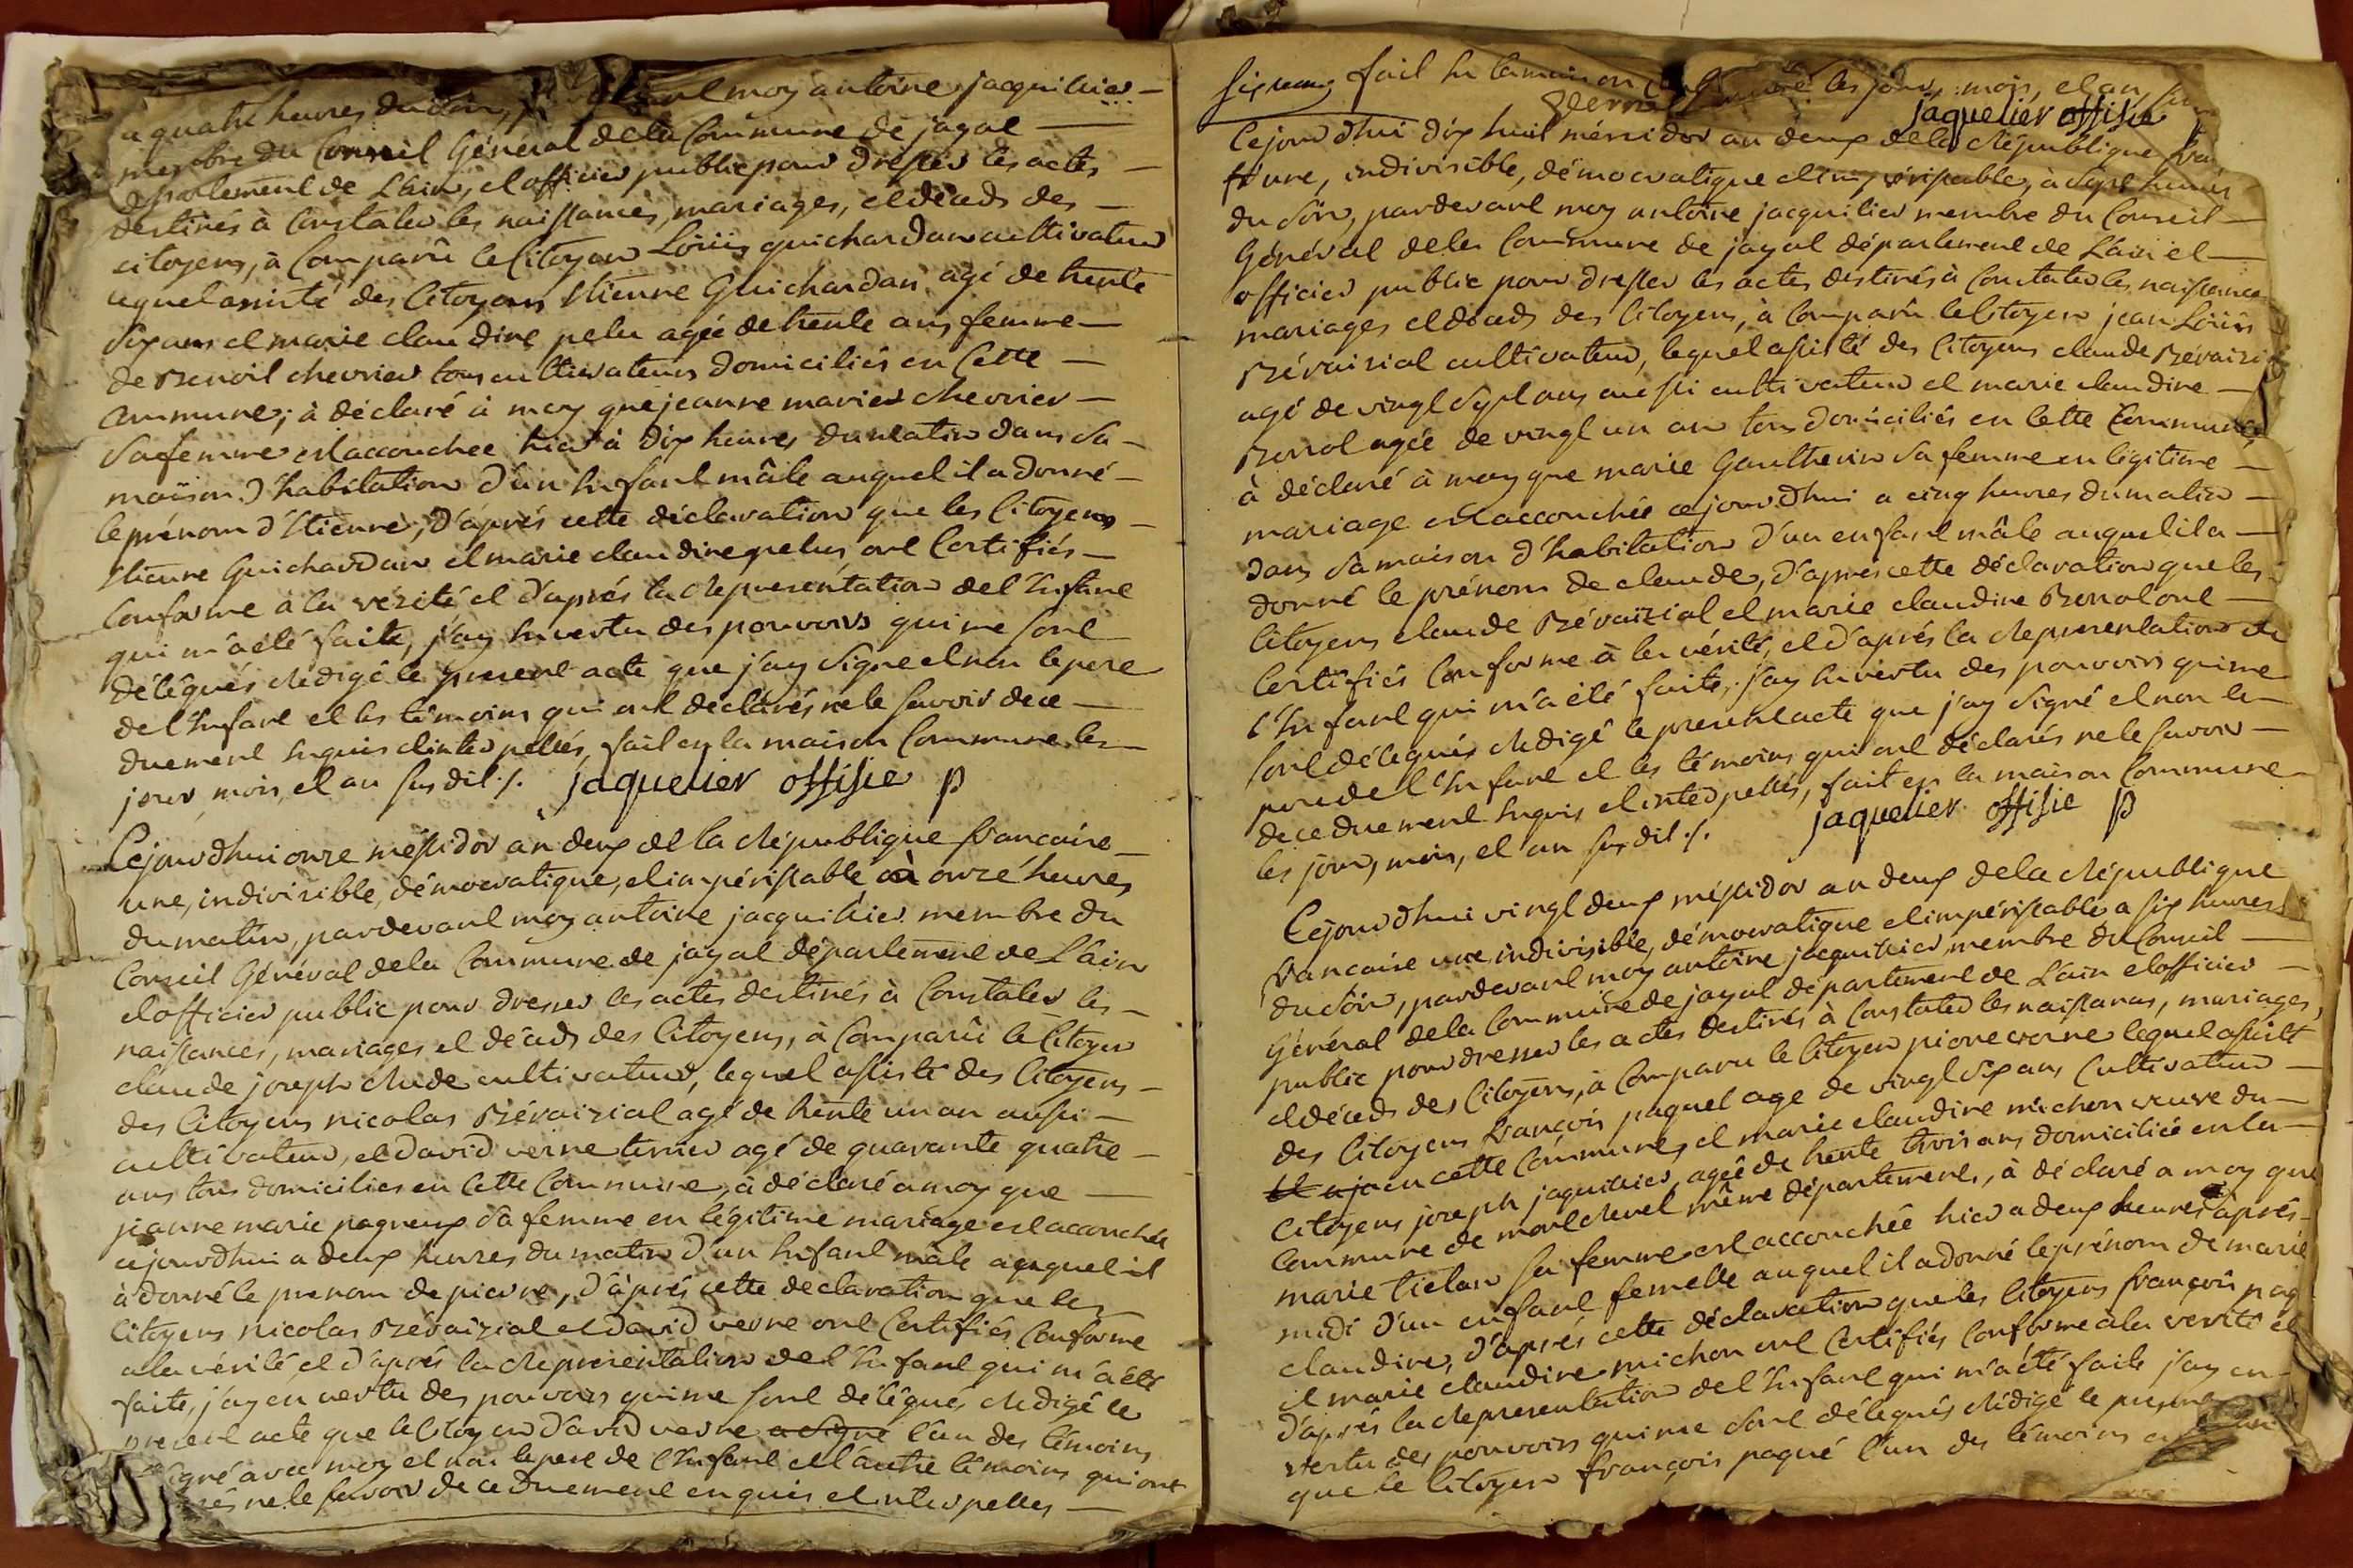 a quatre heures du soir, moy antoine jacquilier
membre du Conseil Général de la Commune de jayat
département de L'ain, et officier public pour dresser les actes
destinés à Constater les naissances, mariages, et déceds des
citoyens, à Comparû le Citoyen Loüis guichardan cultivateur
lequel assisté des Citoyens Etienne Guichardan agé de trente
six ans et marie claudine pelu agée de trente ans femme
de Benoit chevrier tous cultivateurs domiciliés en Cette
Commune; à déclaré à moy que jeanne marie chevrier
Sa femme est accouchee hier à dix heures du matin dans Sa
maison d'habitation d'un Enfant mâle auquel il a donné
le prénom d'Etienne, d'après cette déclaration que les Citoyens
Etienne Guichardan et marie claudine pelus ont Certifiés
Conforme à la vérité et d'après la Representation de l'Enfant
qui m'a été faite, j'ay En vertu des pouvoirs qui me Sont
délégués Redigé le present acte que j'ay Signe et non le pere
de l'Enfant et les témoins qui ont déclarés ne le Savoir de ce
duement Enquis et interpellés, fait en la maison Commune les
jour, mois, et an susdit ./. jaquelier offisie p
Cejourdhui onze méssidor an deux de la République francaise
une, indivisible, démocratique, et impérissable à onze heures
du matin, pardevant moy antoine jacquilier membre du
Conseil Général de la Commune de jayat département de L'ain
et officier public pour dresser les actes destinés à Constater les
naissances, mariages et décéds des Citoyens, à Comparû le Citoyen
claude joseph Rude cultivateur, lequel assisté des Citoyens
des Citoyens nicolas Bévaizial agé de trente un an aussi
cultivateur, et David verne tixier agé de quarante quatre
ans tous domicilies en Cette Commune, à déclaré a moy que
jeanne marie pagneux Sa femme en légitime mariage est accouchée
cejourdhui a deux heures du matin d'un Enfant mâle auquel il
à donné le prenom de pierre, d'après cette declaration que les
Citoyens nicolas Bévaizial et David verne ont Certifiés Conforme
a la vérité, et d'après la Representation de l'Enfant qui m'a été
faite, j'ay en vertu des pouvoirs qui me Sont délégués Redigé le
present acte que le Citoyen David verne a signé l'un des témoins
signé avec moy et non le pere de l'Enfant et l'autre témoins qui ont
ne le savoir de ce duement enquis et interpelles
fait En la maison les jour, mois, et an
jaquelier offisie p
Cejourdhui dix huit méssidor an deux de la République
une, indivisible, démocratique et impérissable, à Sept heures
du Soir, pardevant moy antoine jacquilier membre du Conseil
Général de la Commune de jayat département de L'ain et
officier public pour dresser les actes destinés à Constater les naissances
mariages et déceds des Citoyens, à Comparû le Citoyen jean Loüis
Bévaizial cultivateur, lequel assisté des Citoyens claude Bévaizi
agé de vingt Sept ans aussi cultivateur et marie claudine
Borrol agée de vingt un an tous domiciliés en Cette Commune,
à déclaré à moy que marie Gautherin Sa femme en légitime
mariage est accouchée cejourdhui a cinq heures du matin
dans Sa maison d'habitation d'un enfant mâle auquel il a
donné le prénom de claude, d'après cette déclaration que les
Citoyens claude Bévaizial et marie claudine Borrol ont
Certifiés Conforme à la vérité, et d'après la Representation de
l'Enfant qui m'a été faite, j'ay En vertu des pouvoirs qui me
Sont délégués Redigé le present acte que j'ay Signé et non le
pere de l'Enfant et les témoins qui ont déclarés ne le Savoir
de ce duement Enquis et interpellés, fait en la maison Commune
les jour, mois, et an susdit ./. jaquelier offisie p
Cejourdhui vingt deux méssidor an deux de la République
francaise une, indivisible, démocratique et impérissable a six heures
du Soir, pardevant moy antoine jacquilier membre du Conseil
Général de la Commune de jayat département de L'ain et officier
public pour dresser les actes destinés à Constater les naissances, mariages,
et décéds des Citoyens, à Comparu le Citoyen pierre verne lequel assisté
des Citoyens françois paquet age de vingt Six ans Cultivateur
en cette Commune, et marie claudine michon veuve du
Citoyens joseph jaquilier, agée de trente trois ans domiciliée en la
Commune de montrevel même département, à déclaré a moy que
marie Sa femme est accouchée hier a deux heures après
midi d'un enfant femelle auquel il a donné le prénom de marie
claudine, d'après cette déclaration que les Citoyens françois paq
et marie claudine michon ont Certifiés Conforme à la vérité et
d'après la Representation de l'Enfant qui m'a été faite j'ay en
vertu des pouvoirs qui me Sont délégués Rédigé le present
que le Citoyen françois paqué l'un des témoins